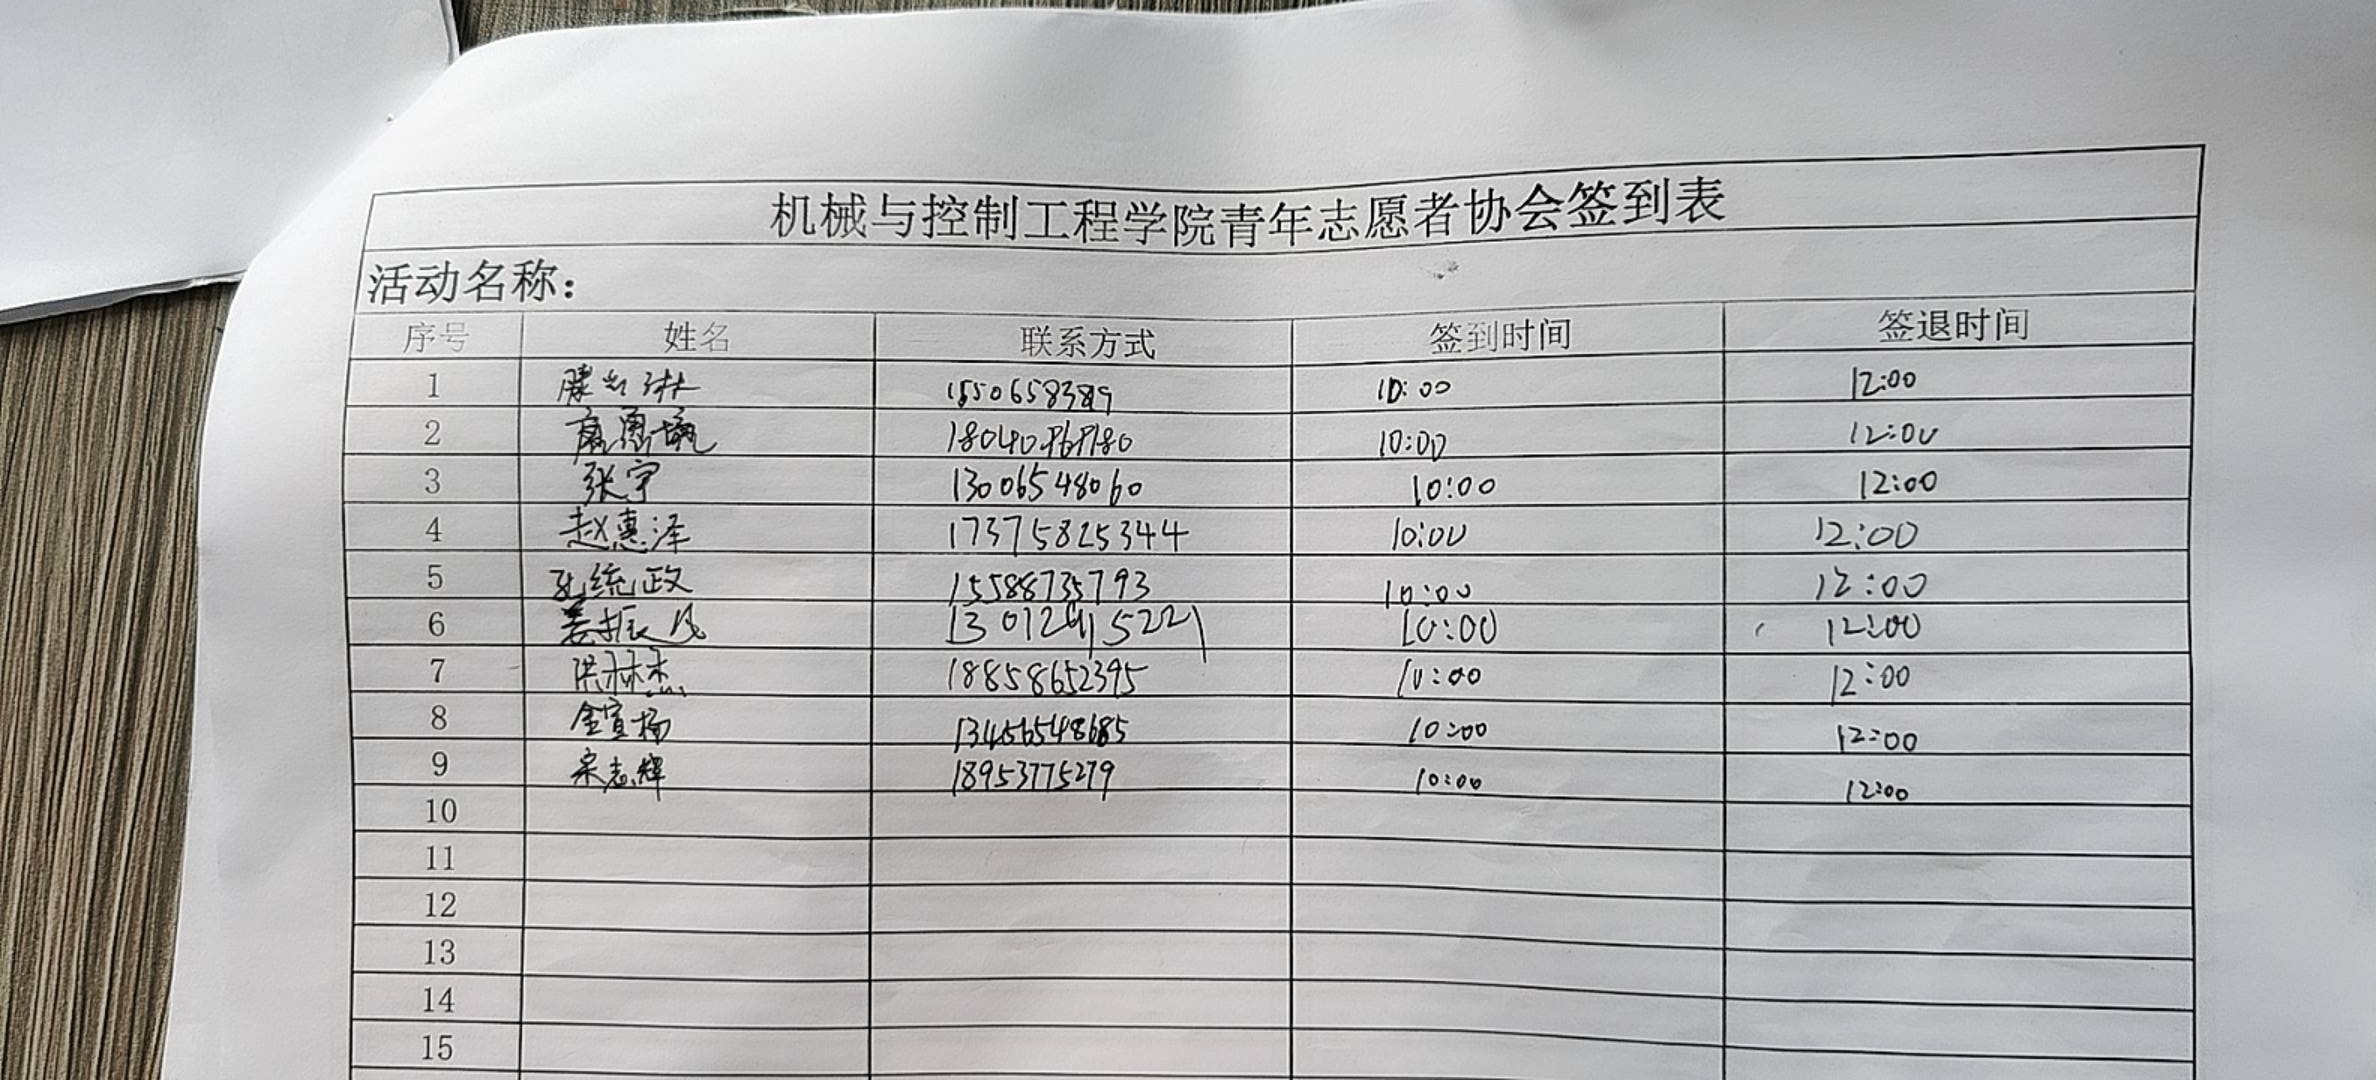 机械与控制工程学院青年志愿者协会签到表
活动名称：
序号 姓名 联系方式 签到时间 签退时间
1 10:00 12:00
2 10:00 12:00
3 张宇 13006548060 10:00 12:00
4 赵惠泽 17375825344 10:00 12:00
5 孔统政 15588735793 10:00 12:00
6 10:00 12:00
7 洪林杰 18858652395 10:00 12:00
8 金宣杨 13456548685 10:00 12:00
9 宋志辉 18953775279 10:00 12:00
10
11
12
13
14
15